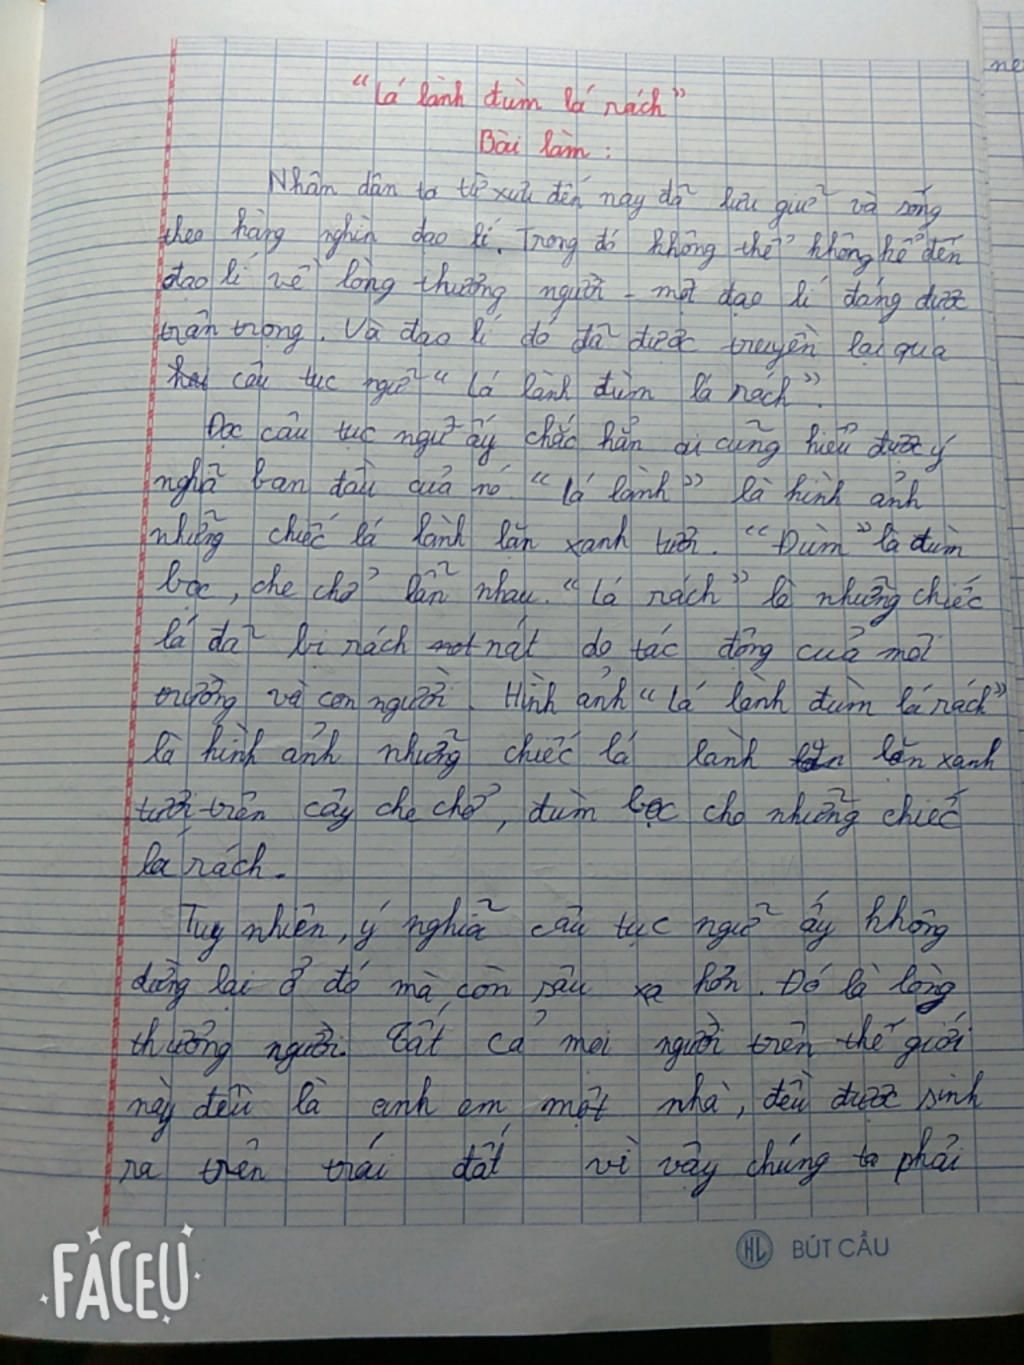 ne
"Lá lành đùm lá rách"
Bài làm :
Nhân dân ta từ xưa đến nay đã lưu giữ và sống
theo hàng nghìn đạo lí. Trong đó không thể không kể đến
đạo lí về lòng thương người - một đạo lí đáng được
trân trọng. Và đạo lí đó đã được truyền lại qua
câu tục ngữ "Lá lành đùm lá rách".
Đọc câu tục ngữ ấy chắc hẳn ai cũng hiểu được ý
nghĩ ban đầu của nó. "Lá lành" là hình ảnh
những chiếc lá lành lặn xanh tươi. "Đùm" là đùm
bọc, che chở lẫn nhau. "Lá rách" là những chiếc
lá đã bị rách nát do tác động của môi
trường và con người. Hình ảnh "Lá lành đùm lá rách"
là hình ảnh những chiếc lá lành lặn xanh
tươi trên cây che chở, đùm bọc cho những chiếc
lá rách.
Tuy nhiên, ý nghĩa câu tục ngữ ấy không
dừng lại ở đó mà còn sâu xa hơn. Đó là lòng
thương người. Tất cả mọi người trên thế giới
này đều là anh em một nhà, đều được sinh
ra trên trái đất vì vậy chúng ta phải
HL BÚT CẦU
FACEU